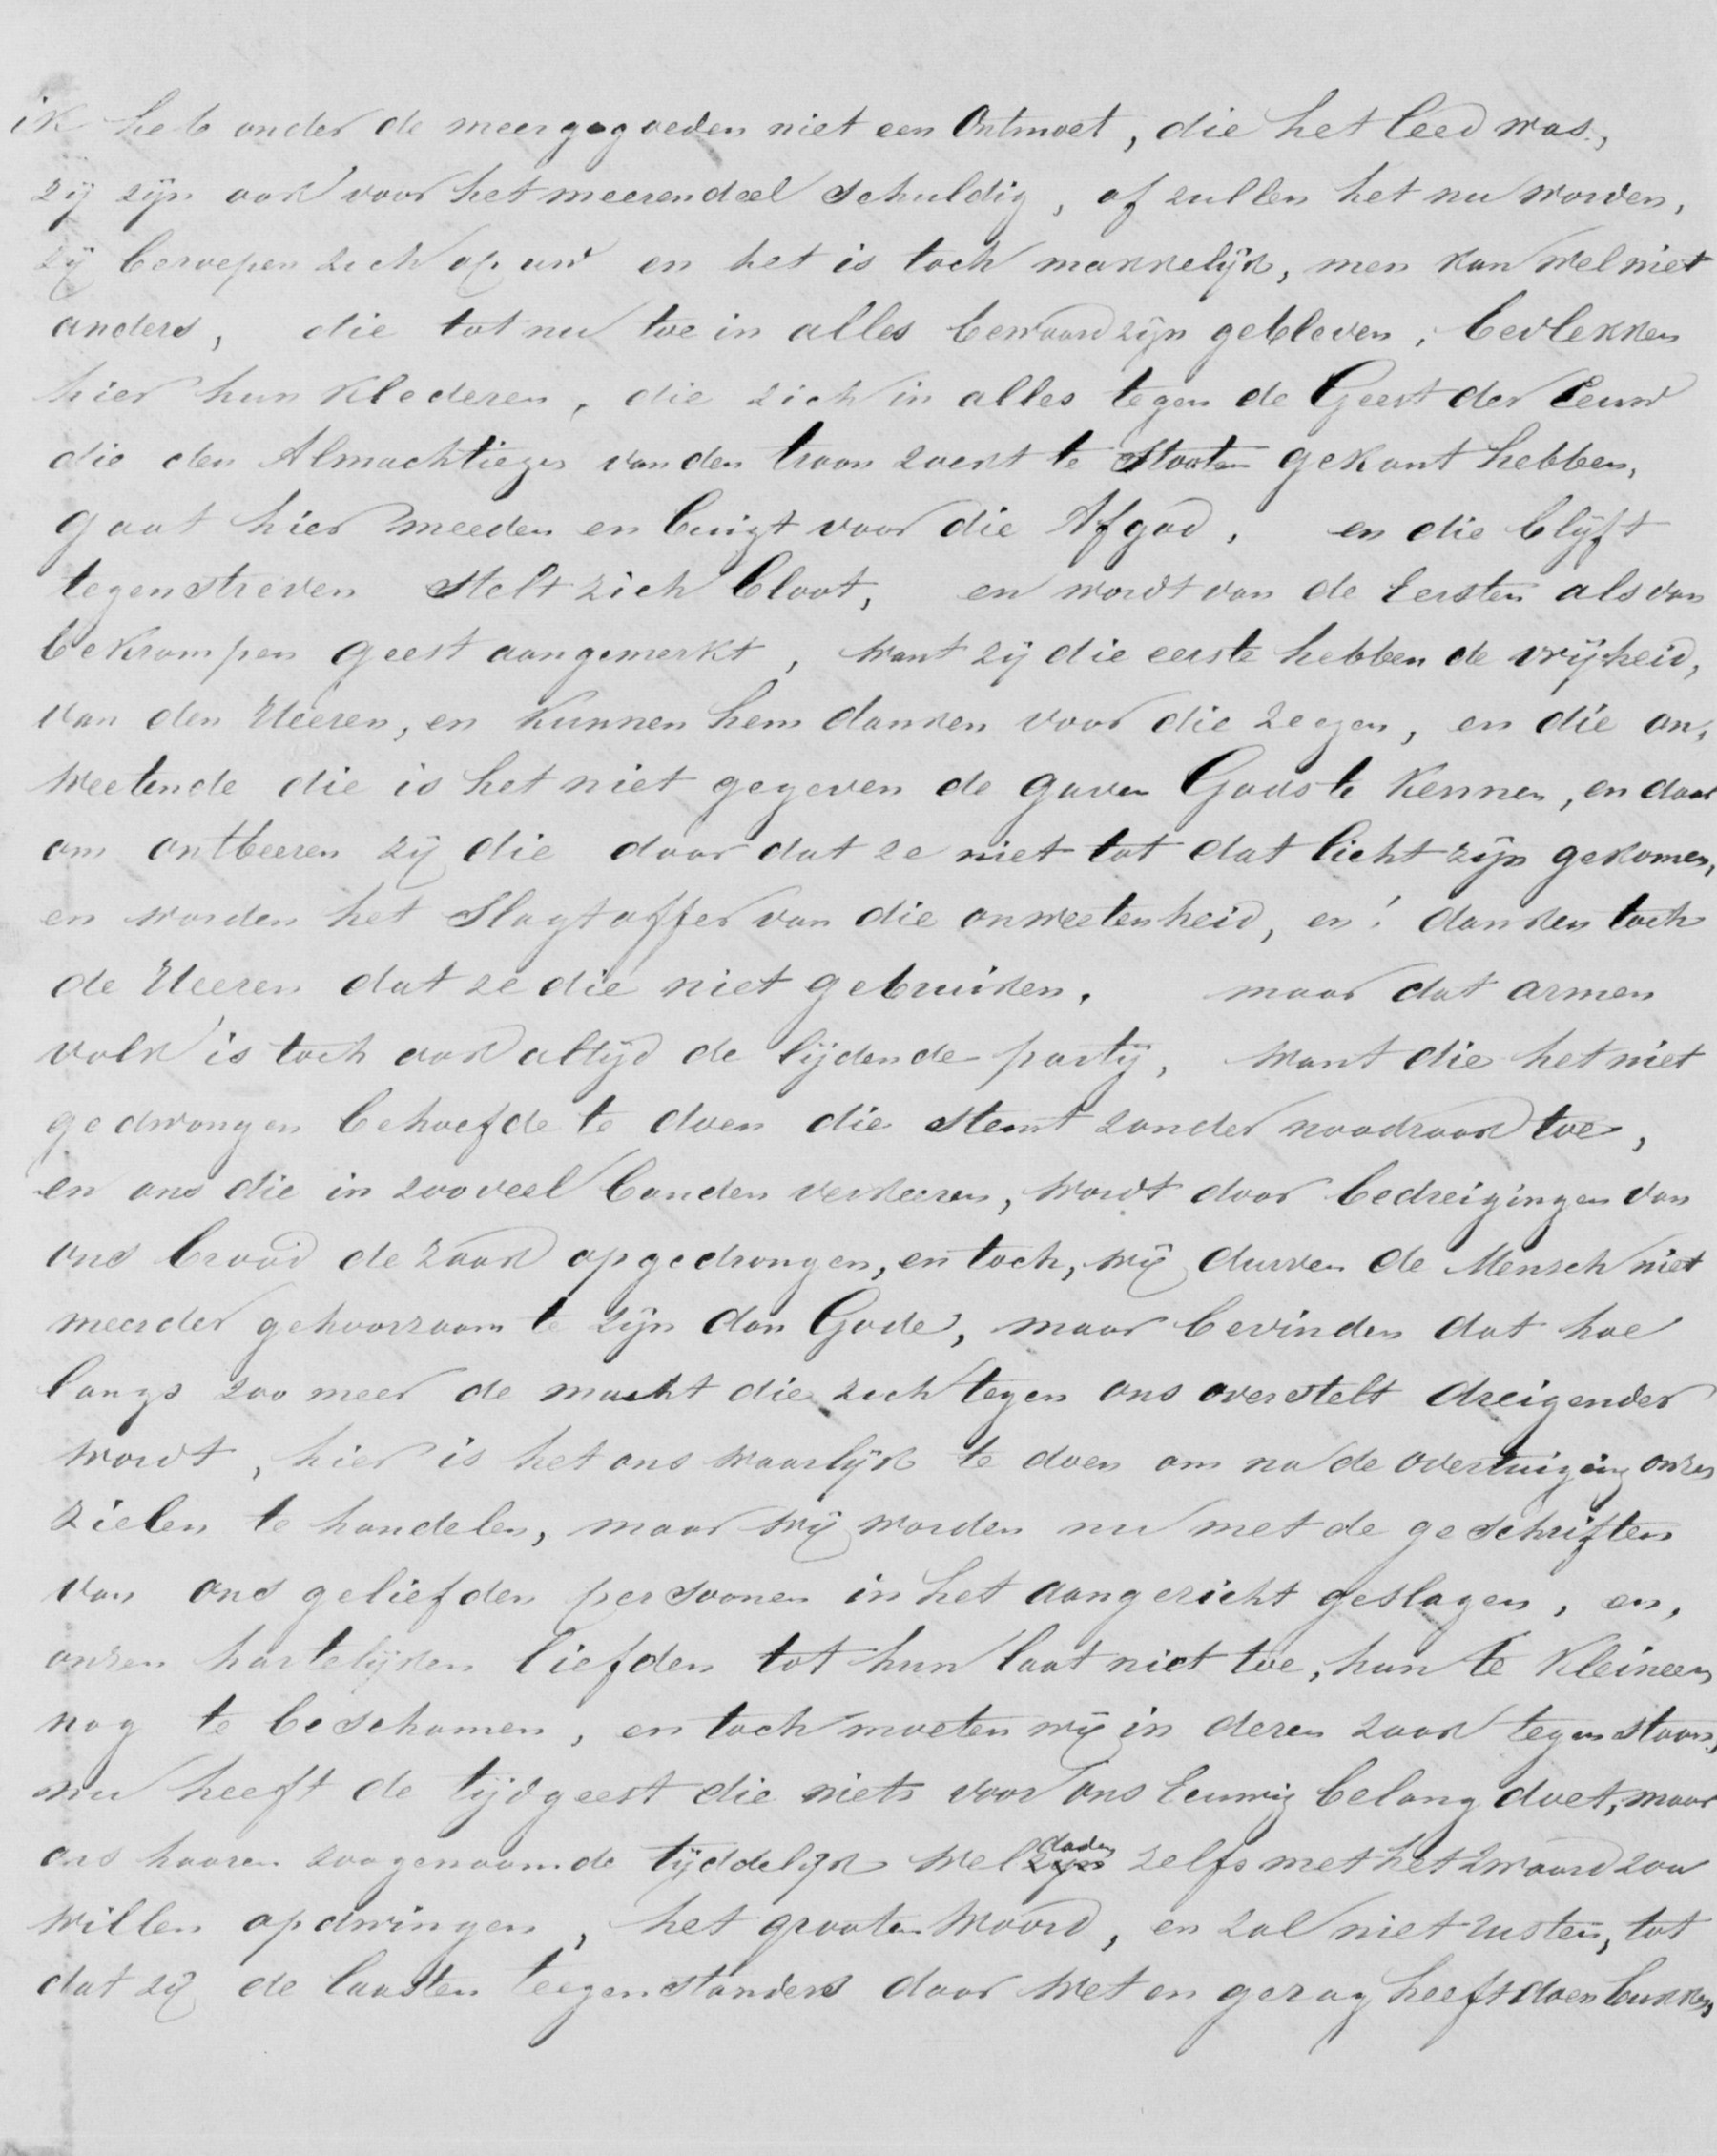 ik heb onder de meer gegoeden niet een Ontmoet, die het leed was,
zij zijn ook voor het meerendeel schuldig, of zullen het nu worden,
zij beroepen zich op uw en het is toch makkelijk, men kan wel niet
anders, die tot nu toe in alles bewaard zijn gebleven, bevlekken
hier hun klederen, die zich in alles tegen de Geest der Eeuw
die den Almachtiegen van den troon zoekt te stooten gekant hebben,
gaat hier meeden en buigt voor die Afgod, en die blijft
tegenstreven stelt zich bloot, en wordt van de Eersten als van
bekrompen geest aangemerkt, want zij die eerste hebben de vrijheid,
van den Heeren, en kunnen hem danken voor die zeegen, en die on,
weetende die is het niet gegeven de gaven Gods te kennen, en daar
om ontbeeren zij die door dat ze niet tot dat licht zijn gekomen,
en worden het Slagtoffer van die onweetenheid, en! danken toch
de Heeren dat ze die niet gebruiken. maar dat armen
volk is toch ook altijd de lijdende partij, want die het niet
gedwongen behoefde te doen die stemt zonder noodzaak toe,
en ons die in zooveel banden verkeeren, wordt door bedreigingen van
ons brood de zaak opgedrongen, en toch, wij durven de Mensch niet
meerder gehoorzaam te zijn dan Gode, maar bevinden dat hoe
langs zoo meer de macht die zich tegen ons overstelt dreigender
wordt, hier is het ons waarlijk te doen om na de overtuiging onzer
zielen te handelen, maar wij worden nu met de geschriften
van ons geliefden persoonen in het aangezicht geslagen, en,
onzen hartelijken liefden tot hun laat niet toe, hun te kleineeren
nog te beschamen, en toch moeten wij in deren zaak tegenstaan,
nu heeft de tijdgeest die niets voor ons Eeuwig belang doet, maar
ons haaren zoogenaamde tijddelijk wel zijn daden zelfs met het zwaard zou
willen opdwingen, het grooten woord, en zal niet rusten, tot
dat zij de laasten teegenstanders door wet en gezag heeft doen bukken